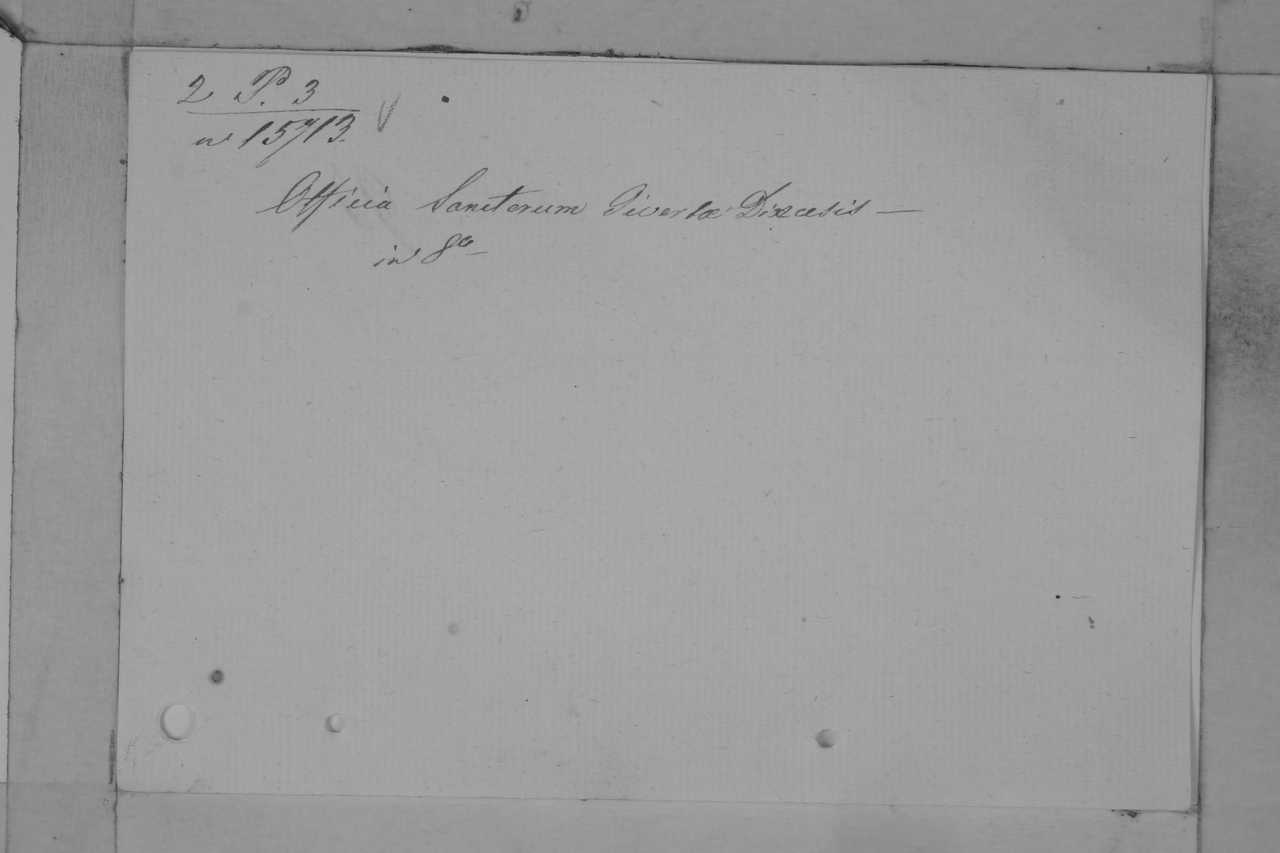 2 P. 3
n 15713.
Officia Sanctorum Diœcesis —
in 8º